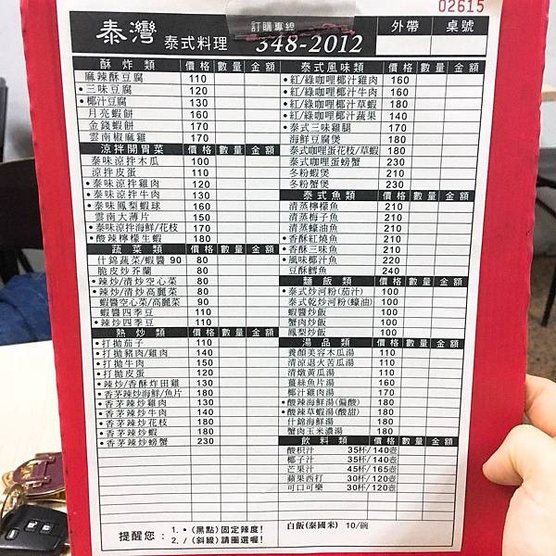 02615
泰灣 泰式料理
訂購專線
348-2012
外帶 桌號
酥炸類 價格 數量 金額
麻辣酥豆腐 110
•三味豆腐 120
•椰汁豆腐 130
月亮蝦餅 160
金錢蝦餅 170
雲南椒麻雞 170
涼拌開胃菜 價格 數量 金額
泰味涼拌木瓜 100
涼拌皮蛋 110
•泰味涼拌雞肉 120
•泰味涼拌牛肉 130
•泰味鳳梨蝦球 160
雲南大薄片 150
•泰味涼拌海鮮/花枝 170
•酸辣檸檬生蝦 180
蔬菜類 價格 數量 金額
什錦蔬菜/蝦醬 90 80
脆皮炒芥蘭 80
•辣炒/清炒空心菜 80
•辣炒/清炒高麗菜 80
蝦醬空心菜/高麗菜 90
蝦醬四季豆 110
•辣炒四季豆 110
熱炒類 價格 數量 金額
•打拋茄子 110
•打拋豬肉/雞肉 140
•打拋牛肉 150
•打拋皮蛋 120
•辣炒/香酥炸田雞 130
•香茅辣炒海鮮/魚片 180
•香茅辣炒雞肉 130
•香茅辣炒牛肉 140
•香茅辣炒花枝 180
•香茅辣炒蝦 180
•香茅辣炒螃蟹 230
泰式風味類 價格 數量 金額
•紅/綠咖哩椰汁雞肉 160
•紅/綠咖哩椰汁牛肉 160
•紅/綠咖哩椰汁草蝦 180
•紅/綠咖哩椰汁蔬果 140
•泰式三味雞腿 170
海鮮豆腐煲 180
泰式咖哩蛋花枝/草蝦 180
泰式咖哩蛋螃蟹 230
冬粉蝦煲 210
冬粉蟹煲 230
泰式魚類 價格 數量 金額
清蒸檸檬魚 210
清蒸梅子魚 210
清蒸蠔油魚 210
•香酥紅燒魚 210
•香酥三味魚 210
•風味椰汁魚 220
豆酥鱈魚 240
麵飯類 價格 數量 金額
•泰式炒河粉(茄汁) 100
泰式乾炒河粉(蠔油) 100
蝦醬炒飯 100
蟹肉炒飯 100
鳳梨炒飯 100
湯品類 價格 數量 金額
養顏美容木瓜湯 110
清涼退火苦瓜湯 110
清燉黃瓜湯 110
薑絲魚片湯 160
椰汁雞肉湯 170
•酸辣海鮮湯(偏酸) 180
•酸辣草蝦湯(酸甜) 180
什錦海鮮湯 180
蟹肉玉米濃湯 180
飲料類 價格 數量 金額
酸枳汁 35杯/140壺
椰子汁 35杯/140壺
芒果汁 45杯/165壺
蘋果西打 30杯/120壺
可口可樂 30杯/120壺
提醒您：
1. •(黑點)固定辣度!
2. /(斜線)請圈選喔!
白飯(泰國米) 10/碗